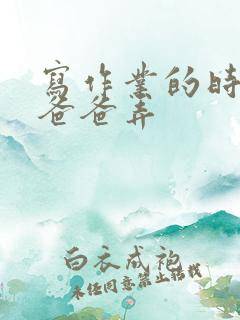 寫作業的時
爸爸弄
白衣成袍
未经同意禁止转载